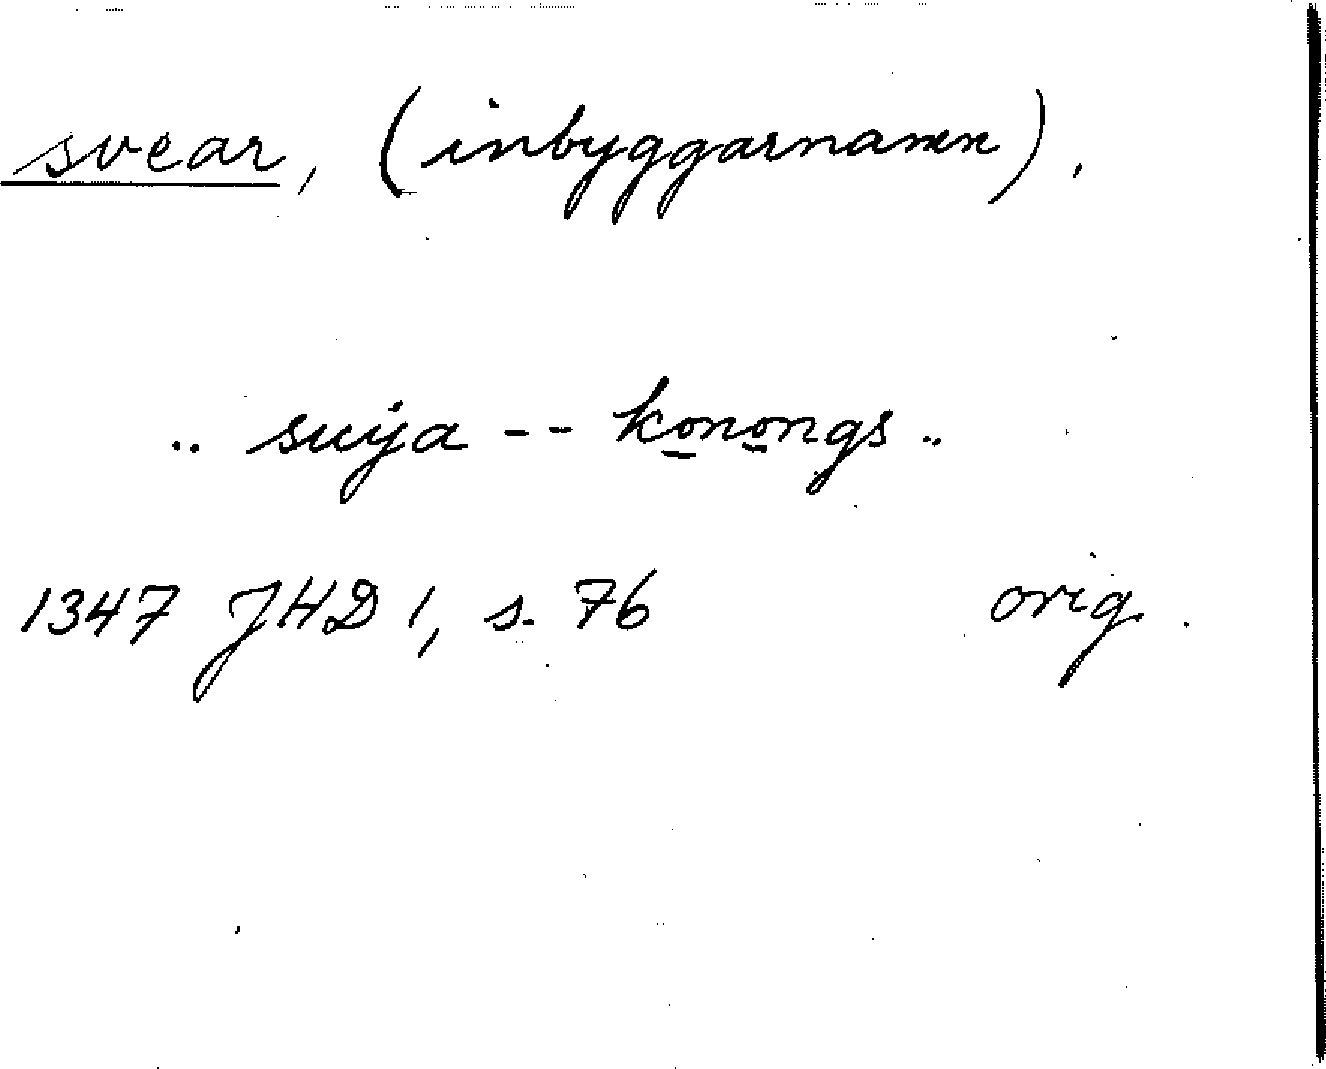 svear, (inbyggarnamn).
.. suija -- konongs ..
1347 JHD 1, s. 76 orig.